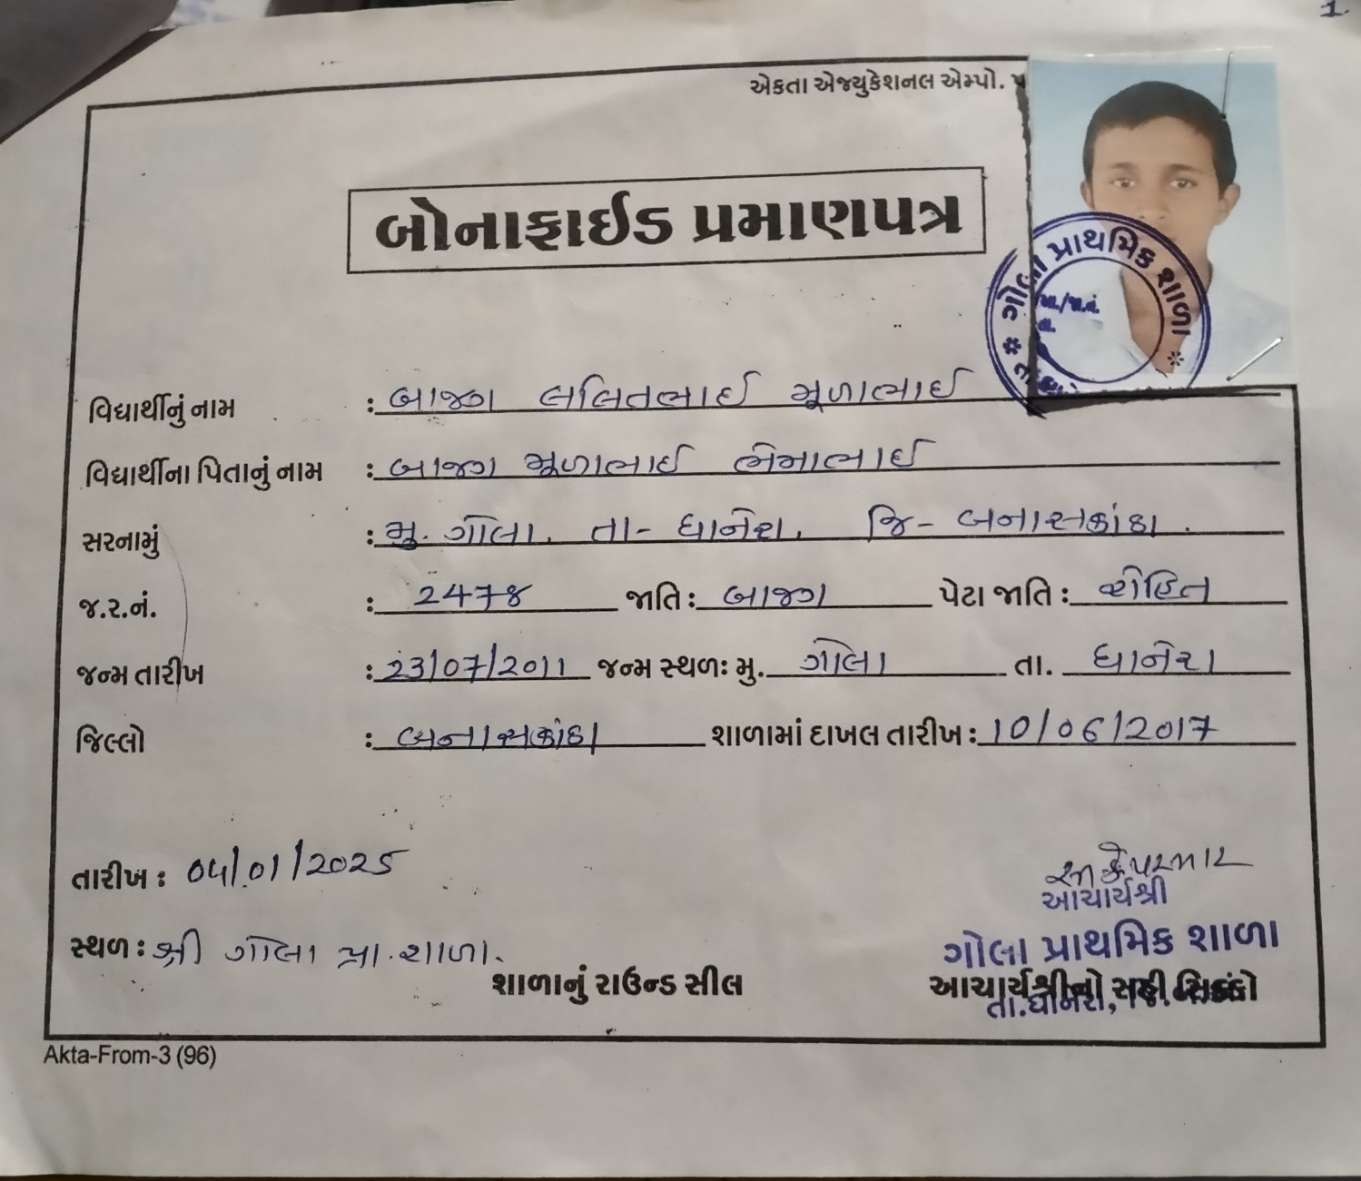 1.
એકતા એજ્યુકેશનલ એમ્પો.
બોનાફાઈડ પ્રમાણપત્ર
ગોલા પ્રાથમિક શાળા
વિદ્યાર્થીનું નામ : બાજગ લલિતભાઈ મૂળાભાઈ
વિદ્યાર્થીના પિતાનું નામ : બાજગ મૂળાભાઈ ભેમાભાઈ
સરનામું : મુ. ગોલા. તા- ધાનેરા. જિ- બનાસકાંઠા.
જ.ર.નં. : 2478 જાતિ : બાજગ પેટા જાતિ : રોહિત
જન્મ તારીખ : 23/07/2011 જન્મ સ્થળઃ મુ. ગોલા તા. ધાનેરા
જિલ્લો : બનાસકાંઠા શાળામાં દાખલ તારીખ : 10/06/2017
તારીખ : 04/01/2025
આચાર્યશ્રી
સ્થળ : શ્રી ગોલા પ્રા. શાળા.
ગોલા પ્રાથમિક શાળા
શાળાનું રાઉન્ડ સીલ આચાર્યશ્રીનો સહી સિક્કો
તા.ધાનેરા,
Akta-From-3 (96)